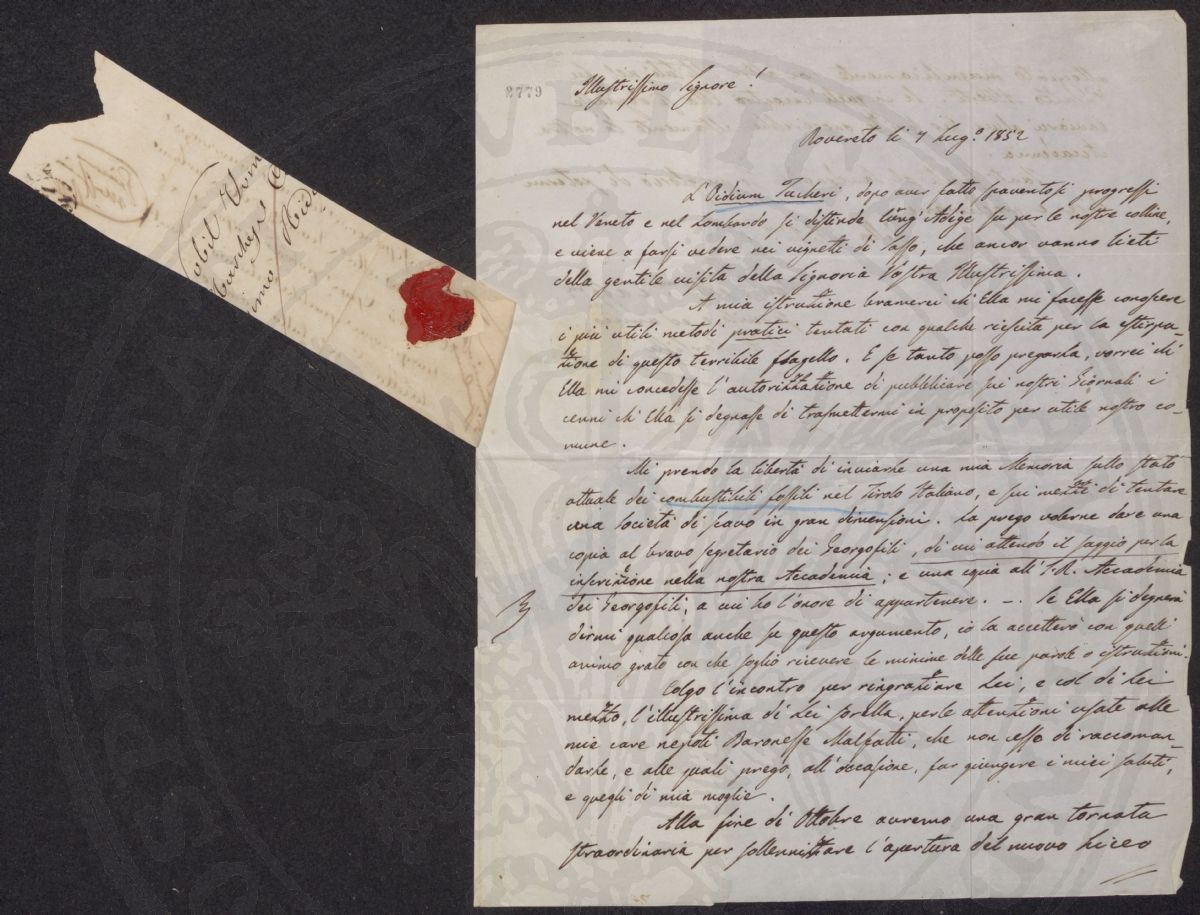 2779
Illustrissimo Signore!
Rovereto li 7 Lug.º 1852
L'Oidium Tuckeri, dopo aver fatto spaventosi progressi
nel Veneto e nel Lombardo si distende lung'Adige su per le nostre colline,
e viene a farsi vedere nei vigneti di Sasso, che ancor vanno lieti
della gentile visita della Signoria Vostra Illustrissima.
A mia istruzione bramerei ch'Ella mi facesse conoscere
i più utili metodi pratici tentati con qualche riescita per la estirpa-
zione di questo terribile flagello. E se tanto posso pregarla, vorrei ch'
Ella mi concedesse l'autorizzazione di pubblicare sui nostri Giornali i
cenni ch'Ella si degnasse di trasmettermi in proposito per utile nostro co-
mune.
Mi prendo la libertà di inviarle una mia Memoria sullo stato
attuale dei combustibili fossili nel Tirolo Italiano, e sui mezzi di tentare
una Società di scavo in gran dimensioni. La prego volerne dare una
copia al bravo segretario dei Georgofili, di cui attendo il saggio per la
inscrizione nella nostra Accademia; e una copia all'I. R. Accademia
dei Georgofili, a cui ho l'onore di appartenere. — Se Ella si degnerà
dirmi qualcosa anche su questo argomento, io la accetterò con quell'
animo grato con che soglio ricevere le minime delle sue parole o istruzioni.
Colgo l'incontro per ringraziare Lei, e col di Lei
mezzo, l'illustrissima di Lei sorella, per le attenzioni usate alle
mie care nepoti Baronesse Malfatti, che non cesso di raccoman-
darle, e alle quali prego, all'occasione, far giungere i miei saluti,
e quegli di mia moglie.
Alla fine di Ottobre avremo una gran tornata
straordinaria per sollennizzare l'apertura del nuovo Liceo